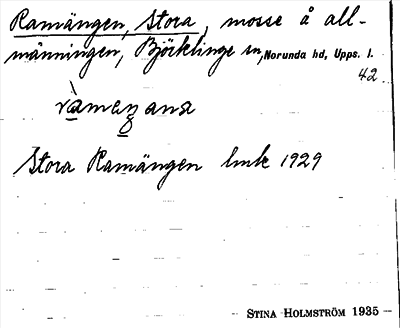 Ramängen, Stora, mosse å all-
männingen, Björklinge sn, Norunda hd, Upps. l.
42.
ràmeŋana
Stora Ramängen lmk 1929
STINA HOLMSTRÖM 1935 -